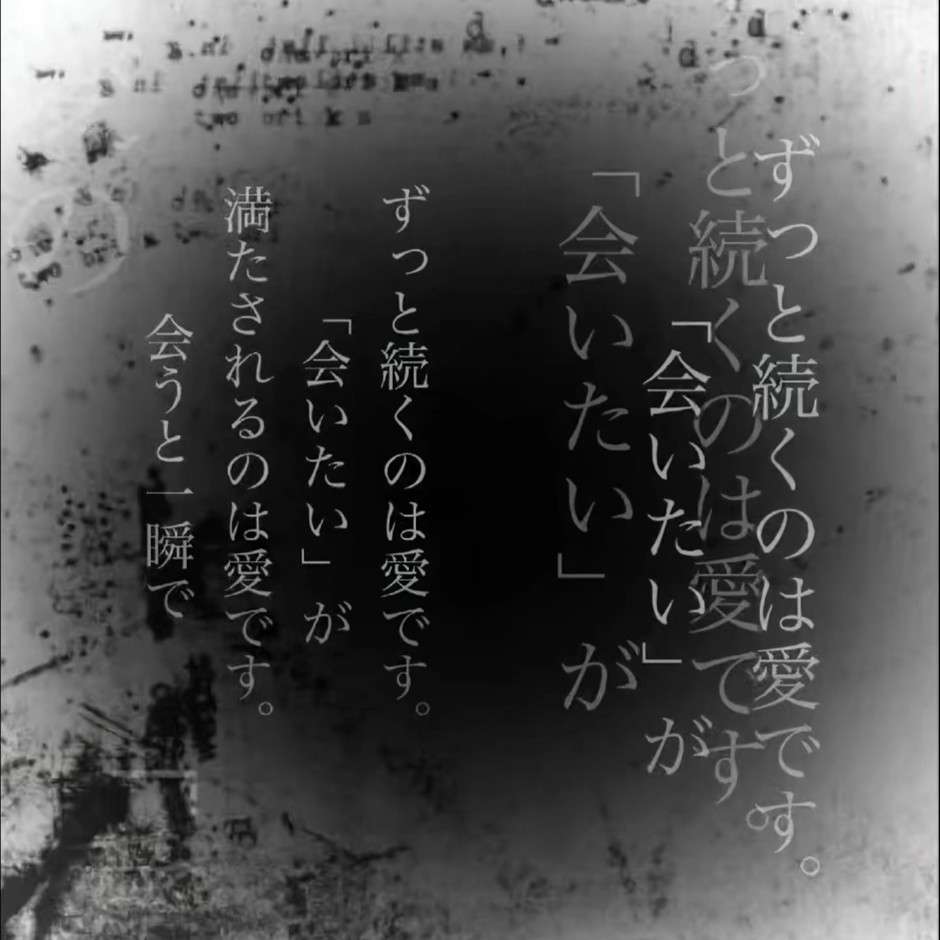 ずっと続くのは愛です。
「会いたい」が
っと続くのは愛です。
「会いたい」が
ずっと続くのは愛です。
「会いたい」が
満たされるのは愛です。
会うと一瞬で
two